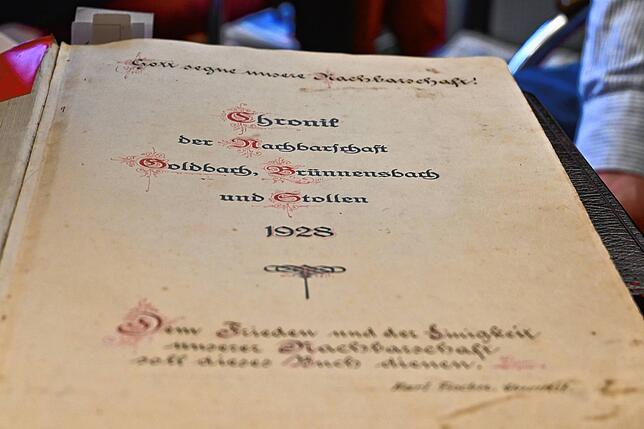 Gott segne unsere Nachbarschaft!
Chronik
der Nachbarschaft
Goldbach, Brünnensbach
und Stollen
1928
Dem Frieden und der Einigkeit
unserer Nachbarschaft
soll dieses Buch dienen.
Karl